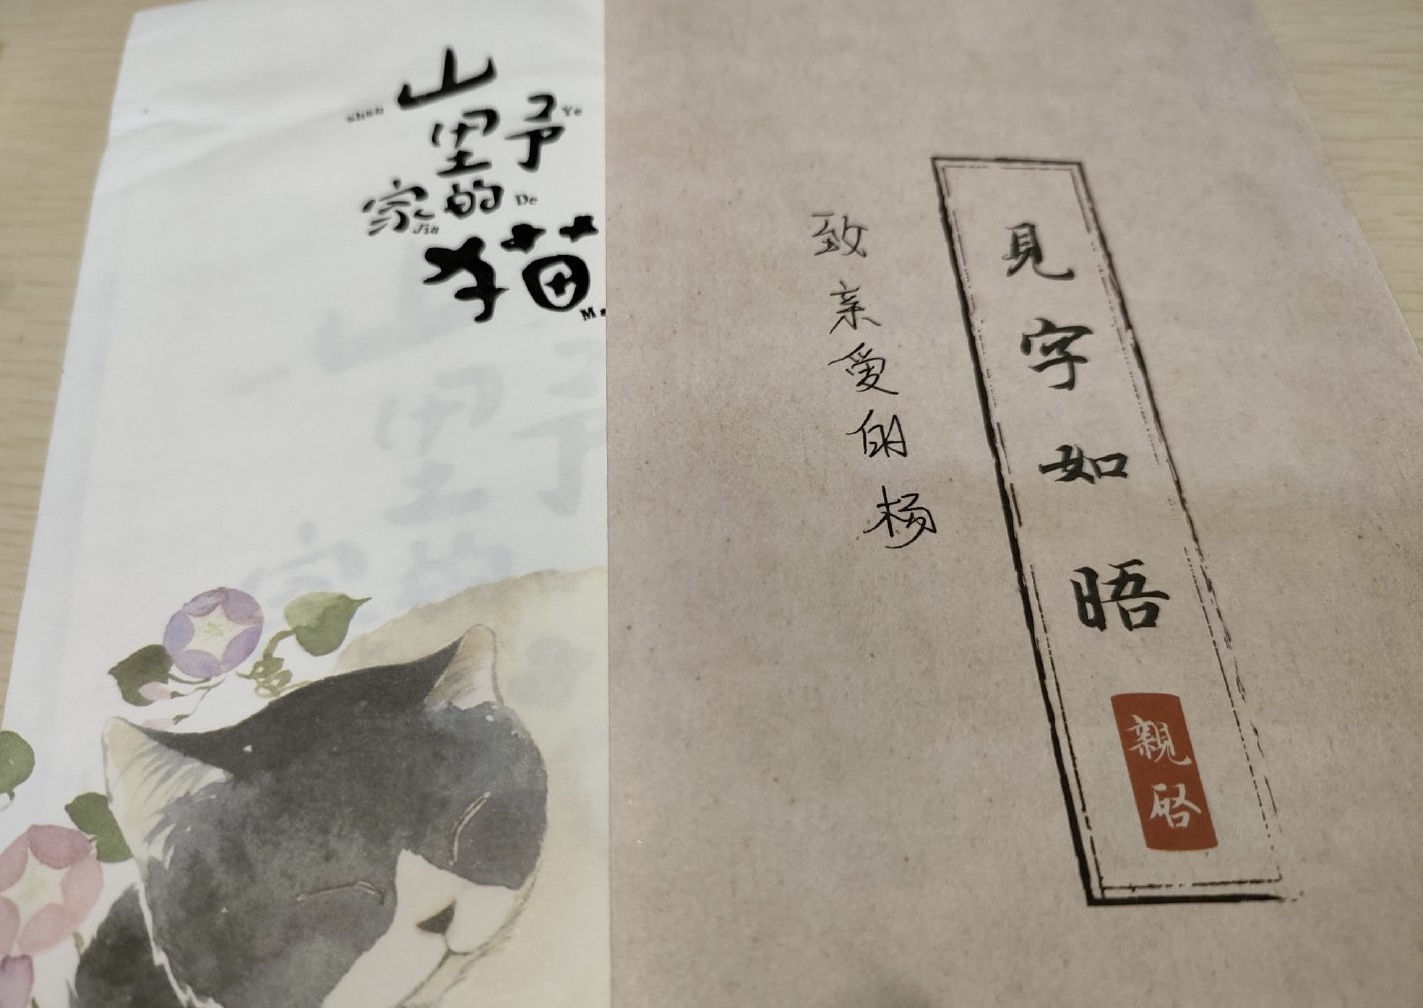 山
shan
野
Ye
里
的
De
家
Jia
猫
見字如晤
親啓
致亲爱的杨